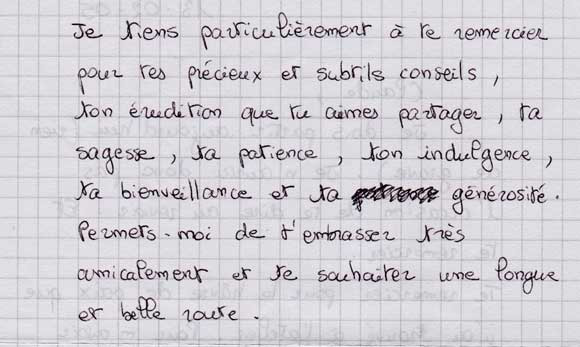 Je tiens particulièrement à te remercier
pour tes précieux et subtils conseils,
ton érudition que tu aimes partager, ta
sagesse, ta patience, ton indulgence,
ta bienveillance et ta générosité.
Permets-moi de t'embrasser très
amicalement et te souhaiter une longue
et belle route.